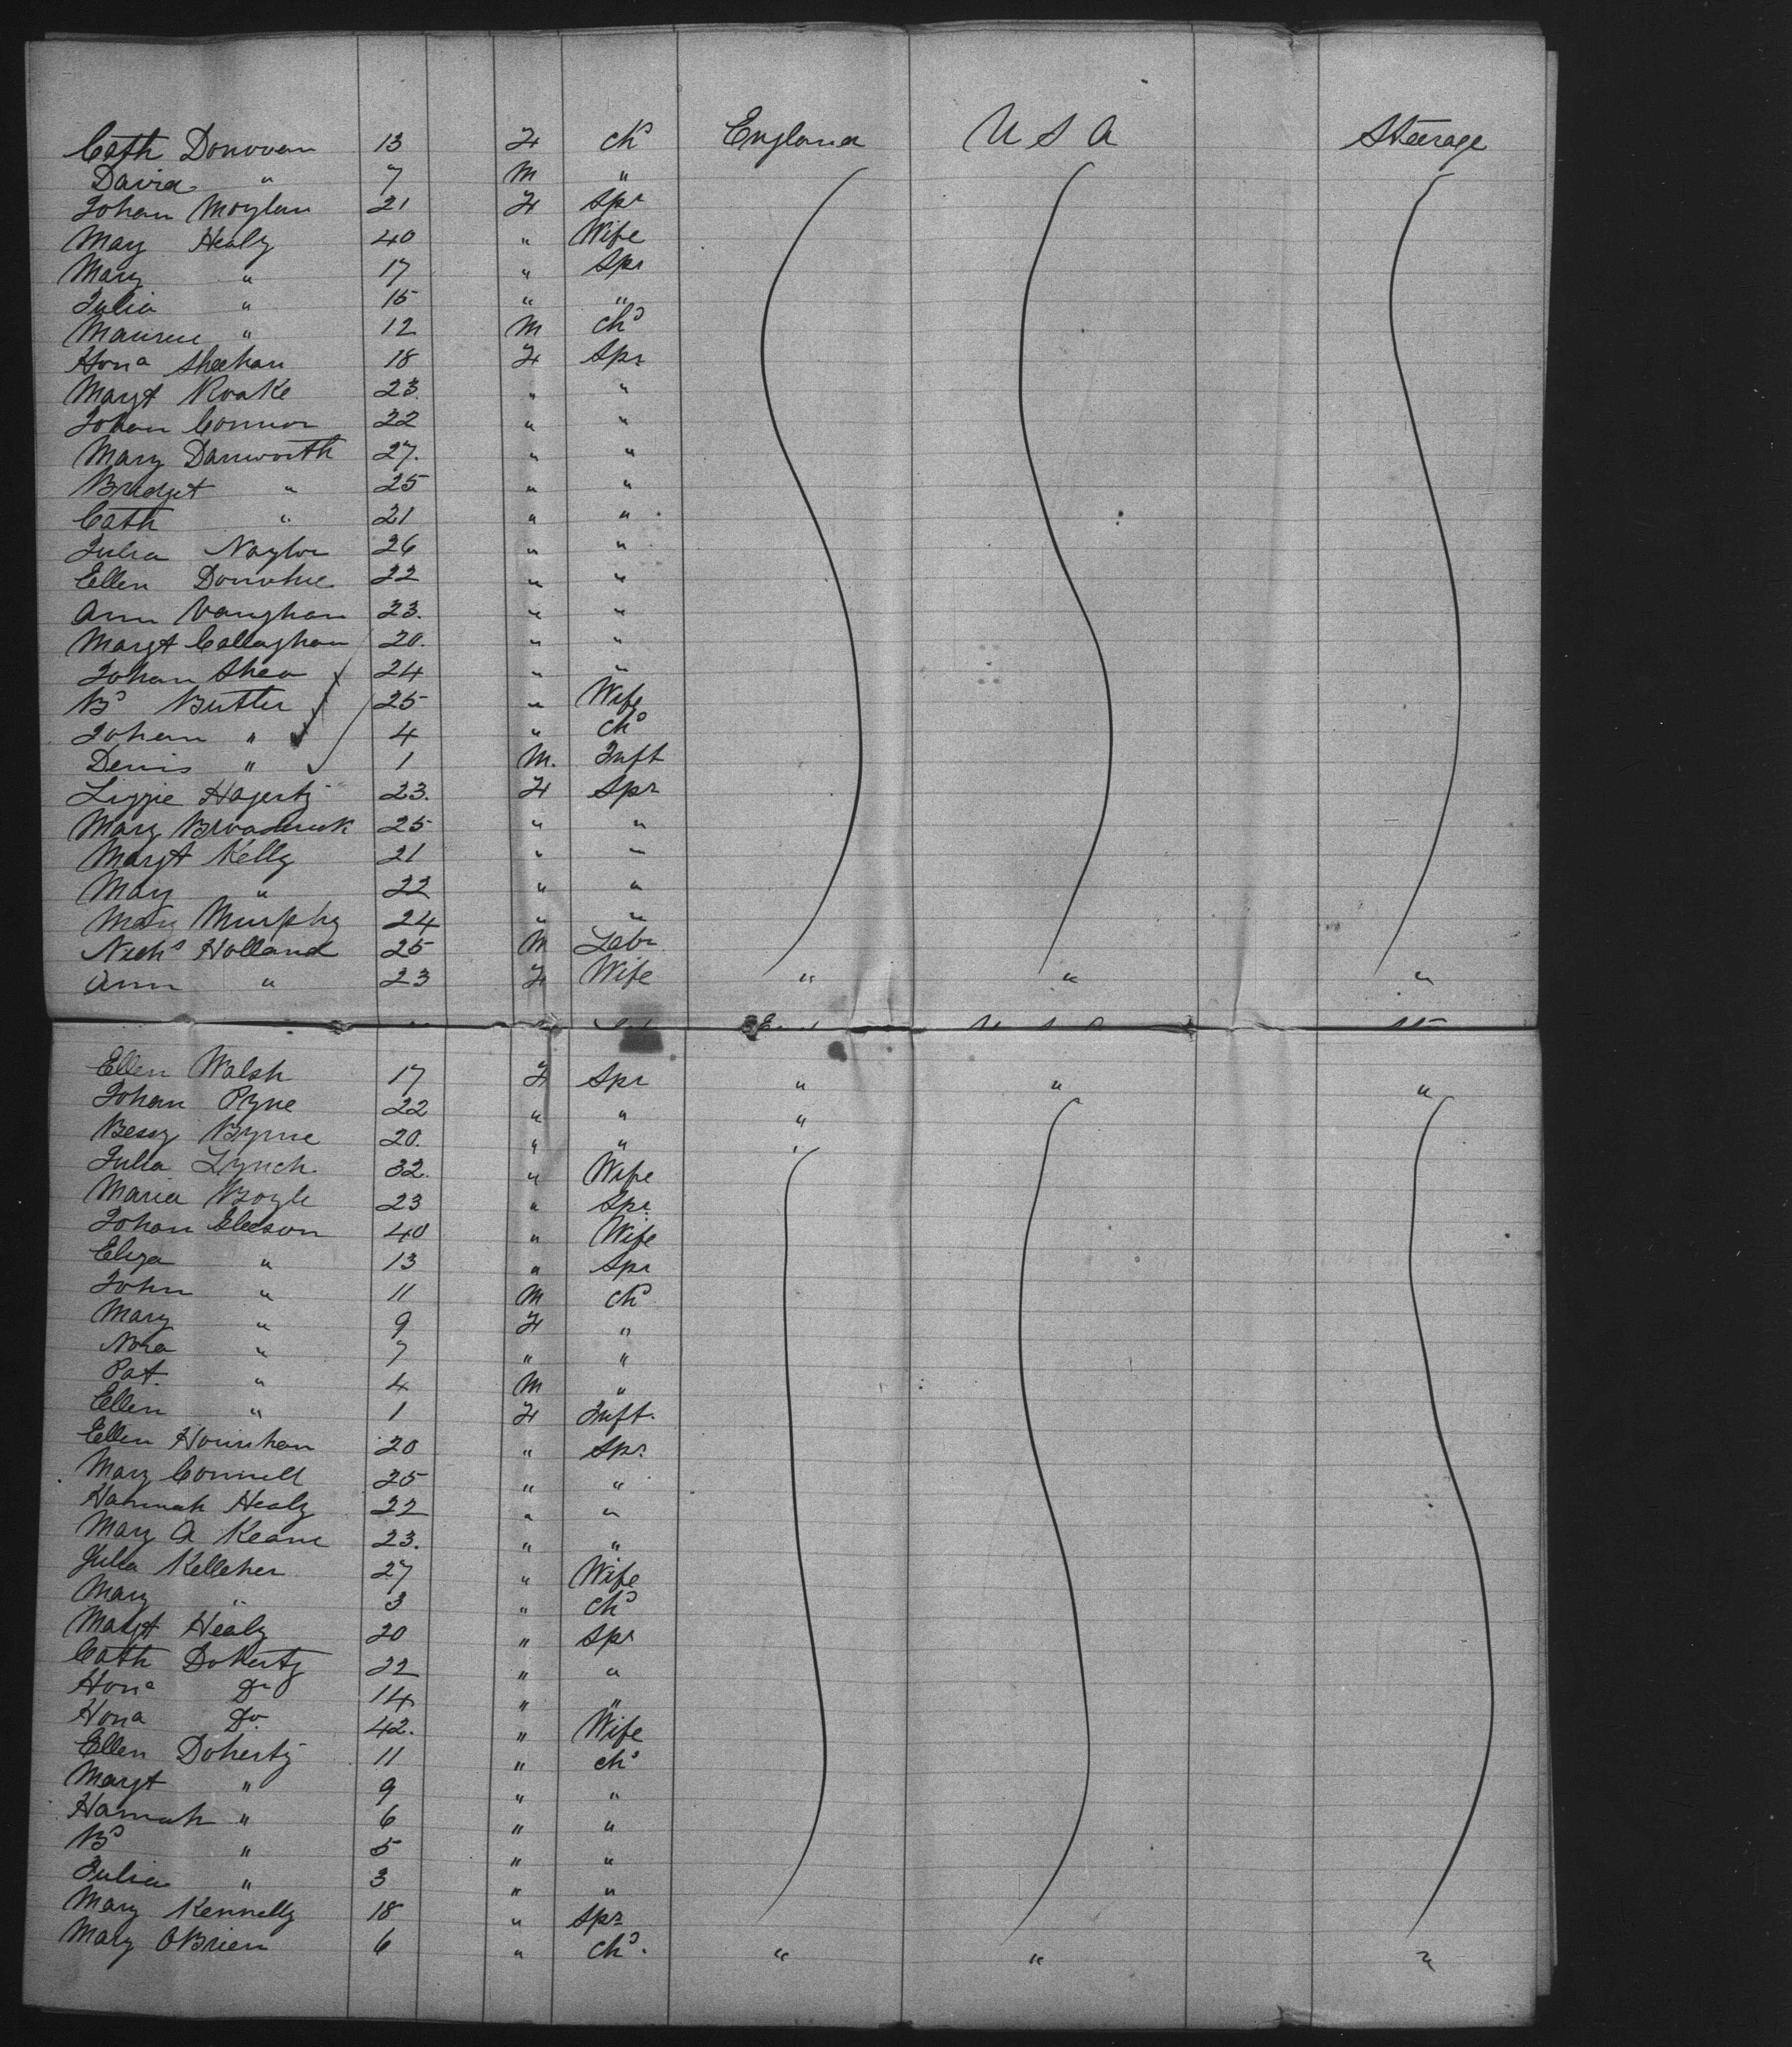 Cath Donovan 13 F Chd England U S A Steerage
David " 7 M "
Johan Moylan 21 F Spr
May Healy 40 " Wife
Mary " 17 " Spr
Julia " 15 " "
Maurice " 12 M Chd
Hona Sheehan 18 F Spr
Margt Roake 23. " "
Johan Connor 22 " "
Mary Danworth 27. " "
Bridget " 25 " "
Cath " 21 " "
Julia Naylor 26 " "
Ellen Donohue 22 " "
Ann Vaughan 23. " "
Margt Callaghan 20. " "
Johan Shea 24 " "
Bd Butler 25 " Wife
Johan " 4 " Chd
Denis " 1 M. Inft
Lizzie Hagerty 23. F Spr
Mary Broaderick 25 " "
Margt Kelly 21 " "
May " 22 " "
Mary Murphy 24 " "
Nichs Holland 25 M Labr
Ann " 23 F Wife " " "
Ellen Walsh 17 F Spr " " "
Johan Pyne 22 " " "
Bessy Byrne 20. " " "
Julia Lynch 32. " Wife
Maria Boyle 23 " Spr
Johan Gleeson 40 " Wife
Eliza " 13 " Spr
John " 11 M Chd
Mary " 9 F "
Nora " 7 " "
Pat. " 4 M "
Ellen " 1 F Inft.
Ellen Hourihan 20 " Spr.
Mary Connell 25 " "
Hannah Healy 22 " "
Mary A Keane 23. " "
Julia Kelleher 27 " Wife
Mary " 3 " Chd
Margt Healy 20 " Spr
Cath Doherty 22 " "
Hona Do 14 " "
Hona Do. 42. " Wife
Ellen Doherty 11 " Chd
Margt " 9 " "
Hannah " 6 " "
Bd " 5 " "
Julia " 3 " "
Mary Kennelly 18 " Spr
Mary OBrien 6 " Chd. " " "